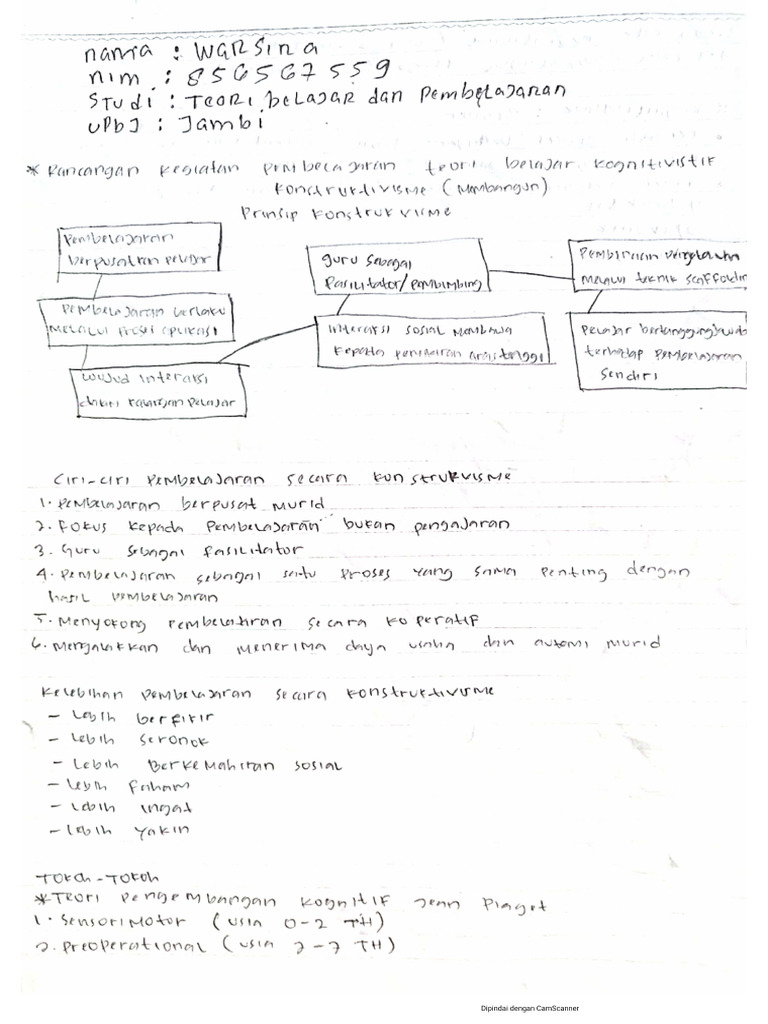 nama : WARSINA
nim : 856567559
Studi : Teori belajar dan Pembelajaran
UPBJ : Jambi
* Rancangan kegiatan Pembelajaran teori belajar kognitivistif
konstruktivisme (Membangun)
Prinsip konstrukvisme
Pembelajaran
berpusatkan pelajar
Pembelajaran berlaku
melalui proses aplikasi
wujud interaksi
dikalangan pelajar
guru sebagai
Fasilitator/Pembimbing
interaksi sosial membawa
kepada pemikiran aras tinggi
Pembinaan pengetahuan
melalui teknik scaffoldin
Pelajar bertanggungjawab
terhadap pembelajaran
sendiri
Ciri-ciri pembelajaran secara konstrukvisme
1. Pembelajaran berpusat murid
2. Fokus kepada pembelajaran bukan pengajaran
3. Guru sebagai fasilitator
4. Pembelajaran sebagai satu proses yang sama penting dengan
hasil pembelajaran
5. Menyokong pembelajaran secara koperatif
6. Mengalakkan dan menerima daya usaha dan automi murid
Kelebihan pembelajaran secara konstruktivisme
- Lebih berfikir
- Lebih seronok
- Lebih berkemahiran sosial
- Lebih faham
- Lebih ingat
- Lebih yakin
Tokoh-Tokoh
* Teori pengembangan kognitif Jean Piaget
1. Sensorimotor (usia 0-2 TH)
2. Preoperational (usia 2-7 TH)
Dipindai dengan CamScanner